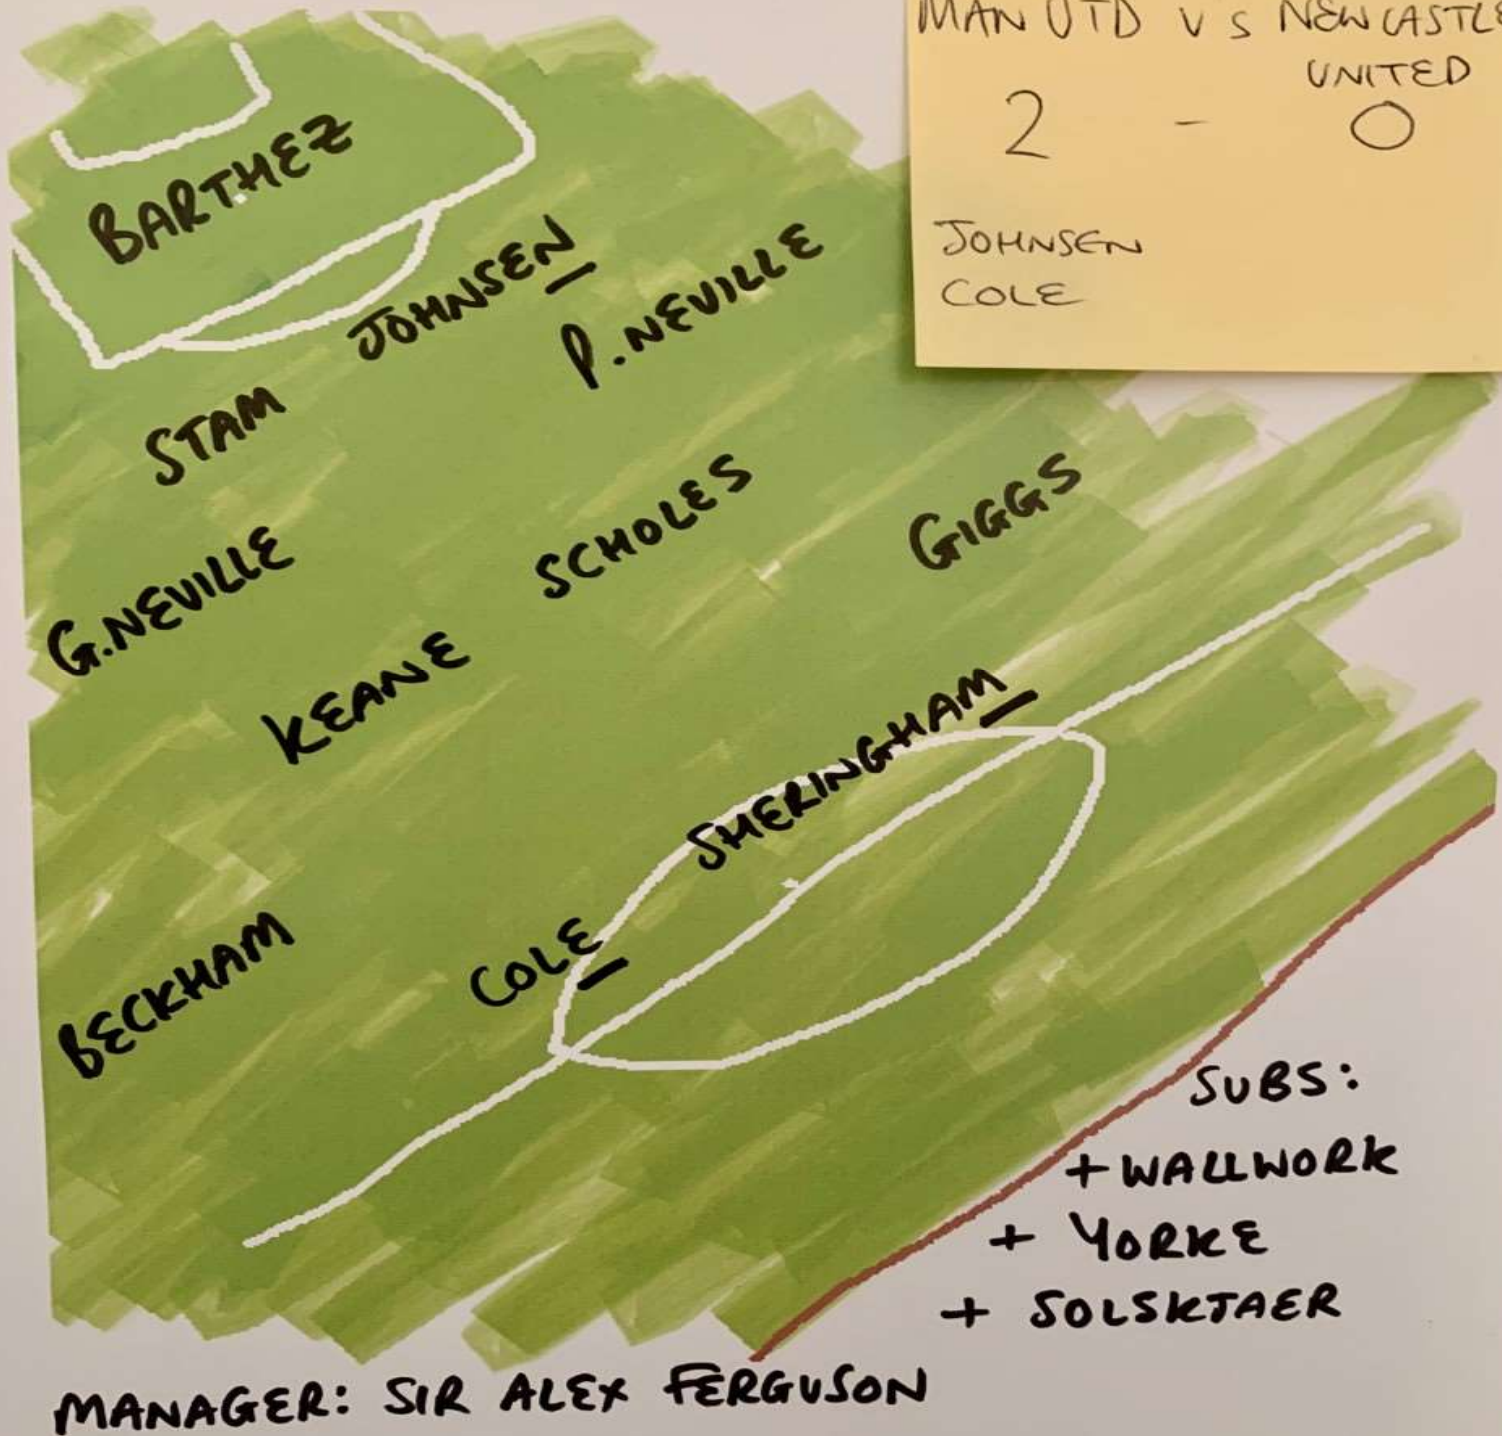 MAN UTD VS NEWCASTLE
UNITED
2 - 0
JOHNSEN
COLE
BARTHEZ
JOHNSEN
P.NEVILLE
STAM
G.NEVILLE
SCHOLES
GIGGS
KEANE
SHERINGHAM
BECKHAM
COLE
SUBS:
+ WALLWORK
+ YORKE
+ SOLSKJAER
MANAGER: SIR ALEX FERGUSON